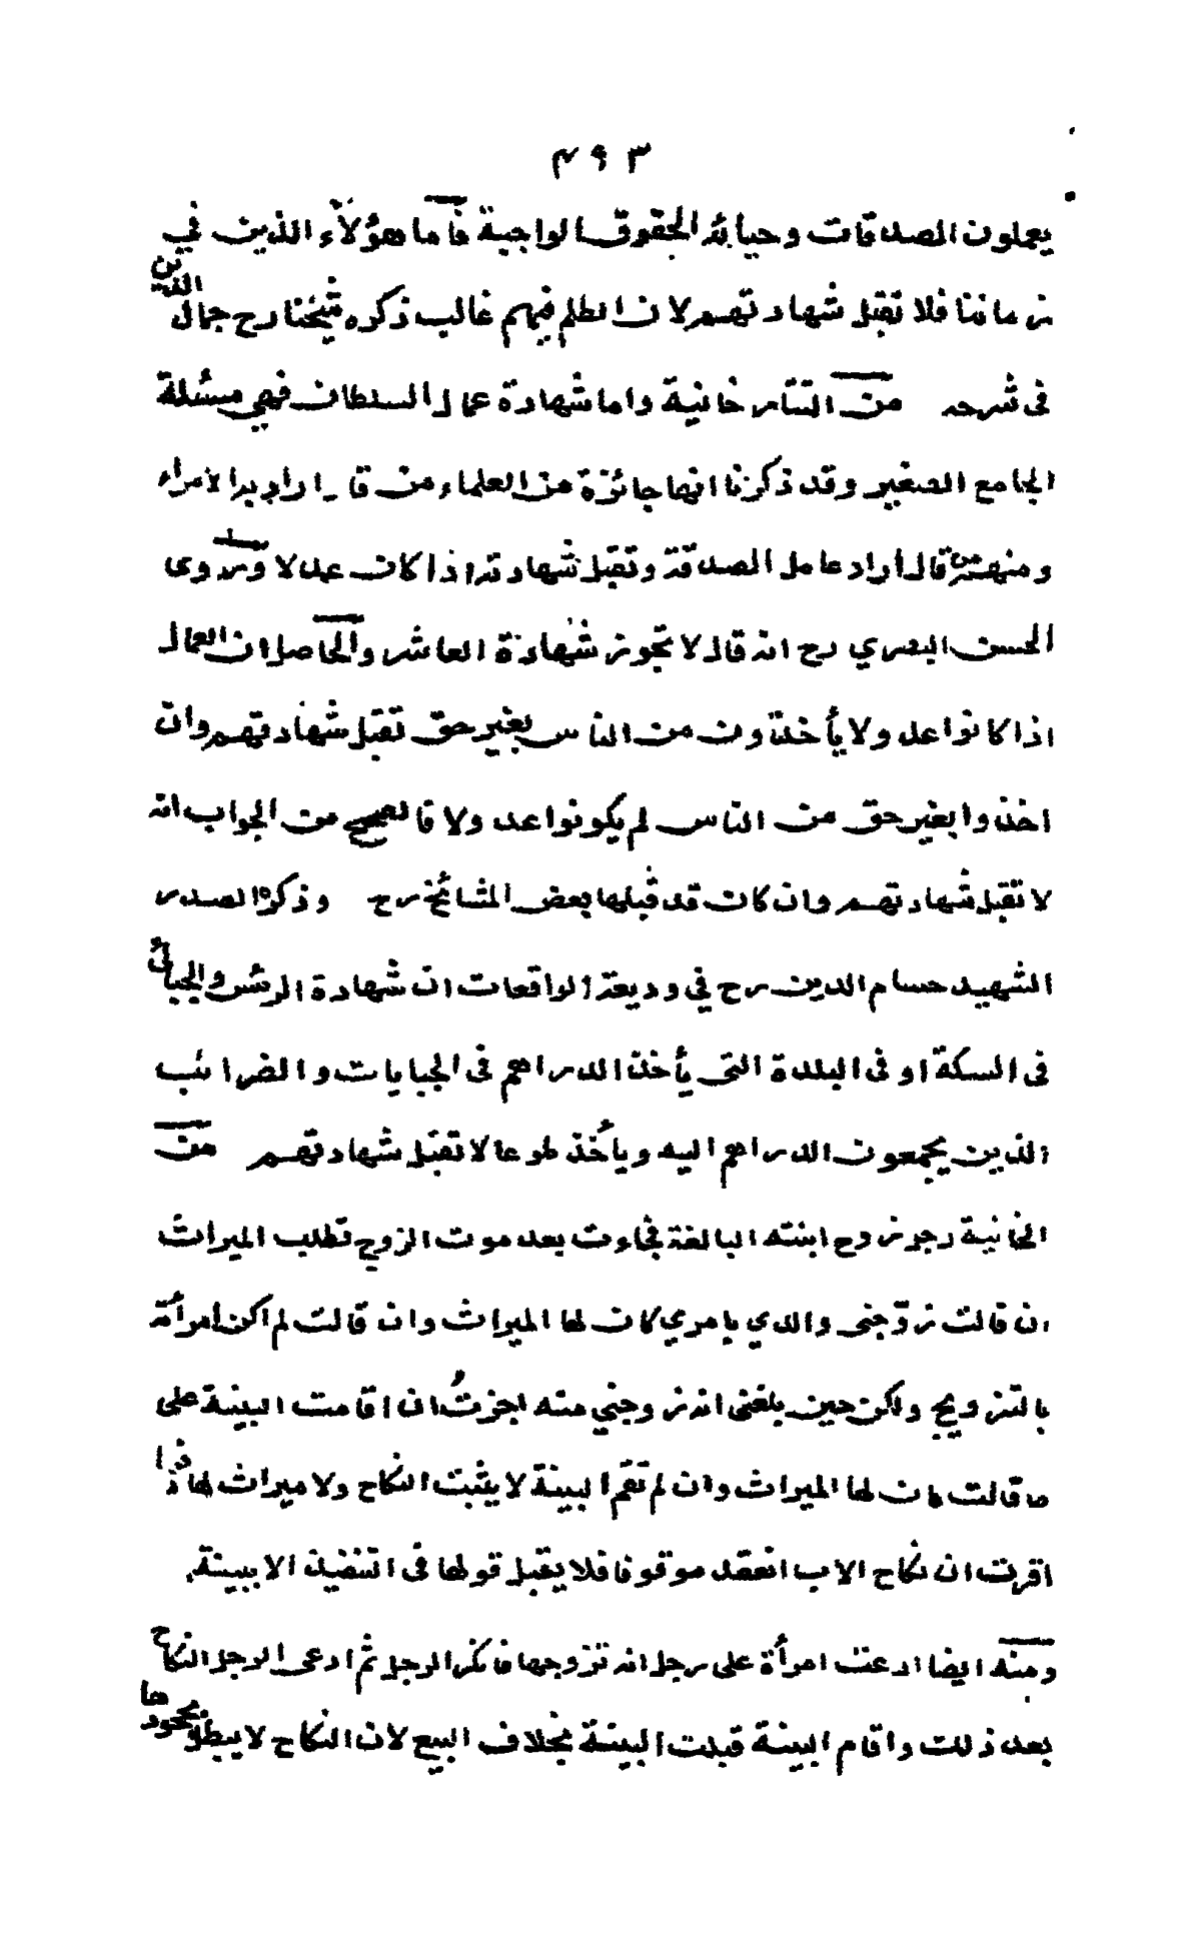 ٤٩٣
يعملون الصدقات وجباية الحقوق الواجبة فأما هؤلاء الذين في
زماننا فلا تقبل شهادتهم لان الظلم فيهم غالب ذكره شيخنا رح جمال الدين
فى شرحه من التتارخانية واما شهادة عمال السلطان فهي مسئلة
الجامع الصغير وقد ذكرنا انها جائزة من العلماء من قال اراد به الامراء
ومنهم من قال أراد عامل الصدقة وتقبل شهادته اذا كان عدلا وروى
الحسن البصري رح انه قال لا تجوز شهادة العاشر والحاصل ان العمال
اذا كانوا عدولا يأخذون من الناس بغير حق تقبل شهادتهم وان
اخذوا بغير حق من الناس لم يكونوا عدولا فالصحيح من الجواب انه
لا تقبل شهادتهم وان كان قد قبلها بعض المشائخ رح وذكر الصدر
الشهيد حسام الدين رح في وديعة الواقعات ان شهادة الرئس والجبائي
فى السكة او فى البلدة التى يأخذ الدراهم فى الجبايات والضرائب
الذين يجمعون الدراهم اليه ويأخذ طوعا لا تقبل شهادتهم من
الخانية رجل زوج ابنته البالغة فجاءت بعد موت الزوج تطلب الميراث
ان قالت زوّجنى والدي بامري كان لها الميراث وان قالت لم اكن امرأته
بالتزويج ولكن حين بلغنى انه زوجني منه اجزتُ ان اقامت البينة على
ما قالت كان لها الميراث وان لم تقم البينة لا يثبت النكاح ولا ميراث لها فاذا
اقرت ان نكاح الاب انعقد موقوفا فلا يقبل قولها فى التنفيذ الا ببينة
ومنه ايضا ادعت امرأة على رجل انه تزوجها فانكر الرجل ثم ادعى الرجل النكاح
بعد ذلك واقام البينة قبلت البينة بخلاف البيع لان النكاح لا يبطل بجحودها